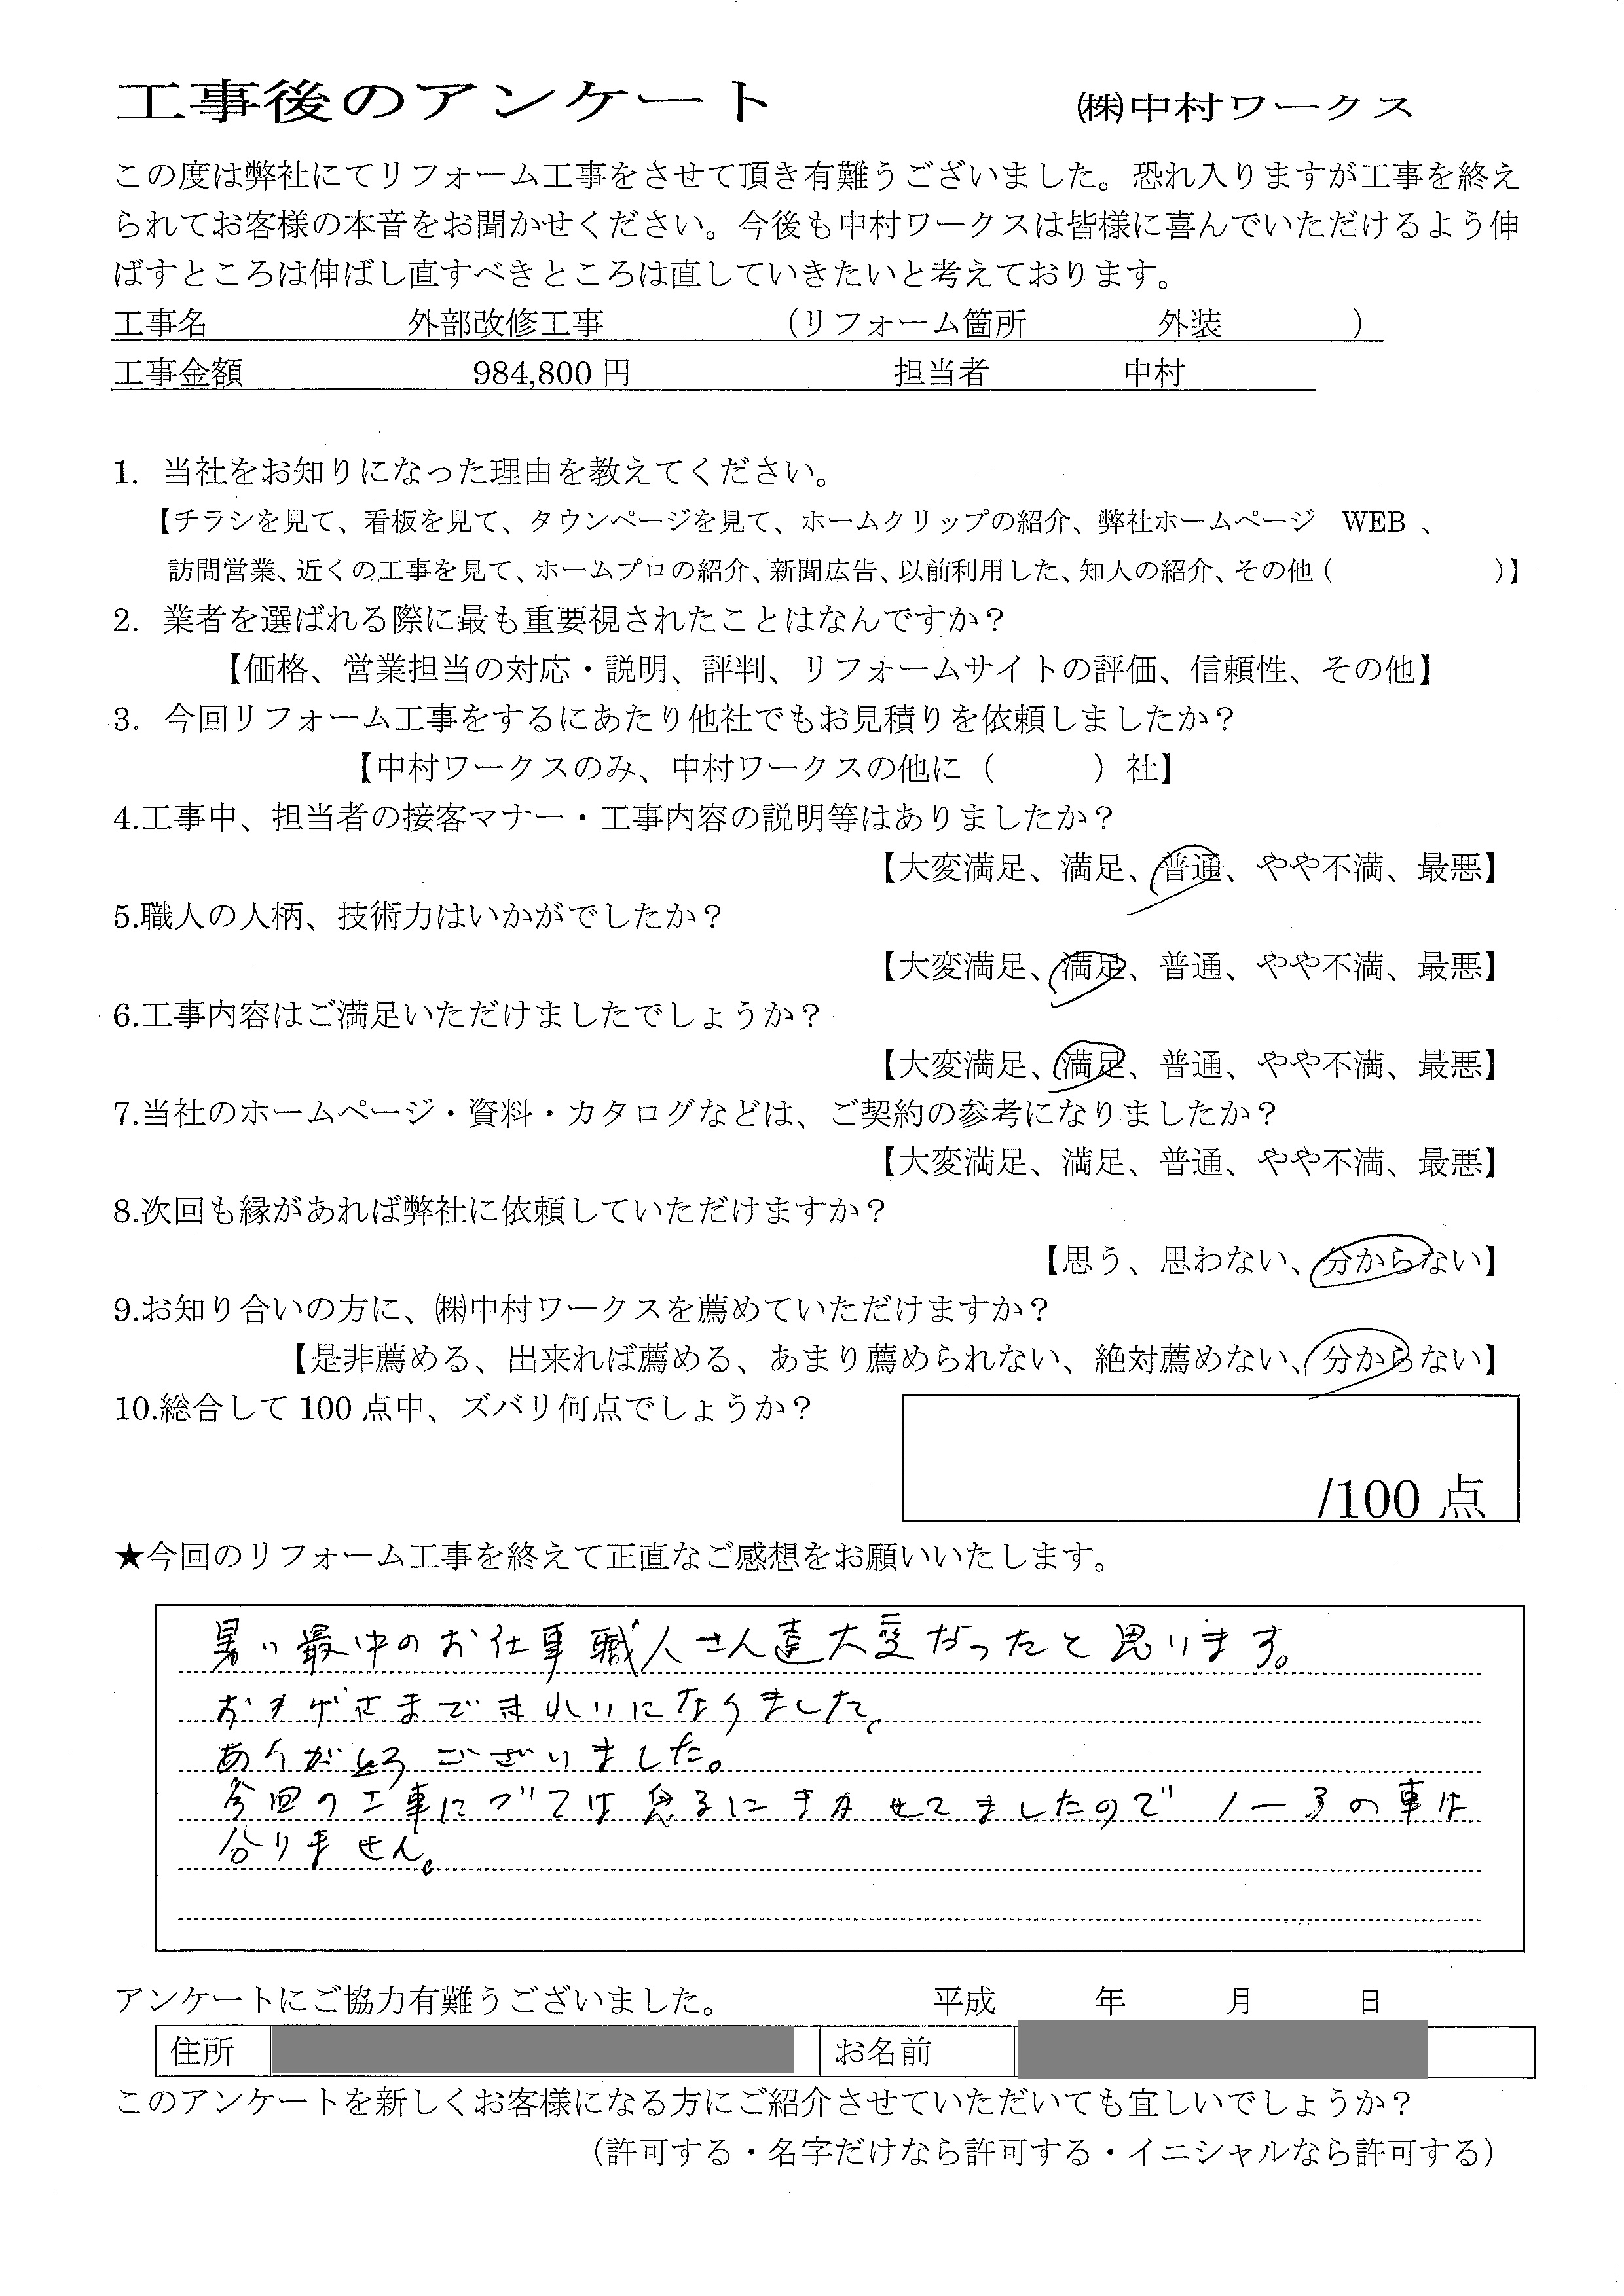 工事後のアンケート ㈱中村ワークス
この度は弊社にてリフォーム工事をさせて頂き有難うございました。恐れ入りますが工事を終え
られてお客様の本音をお聞かせください。今後も中村ワークスは皆様に喜んでいただけるよう伸
ばすところは伸ばし直すべきところは直していきたいと考えております。
工事名 外部改修工事 (リフォーム箇所 外装 )
工事金額 984,800 円 担当者 中村
1. 当社をお知りになった理由を教えてください。
【チラシを見て、看板を見て、タウンページを見て、ホームクリップの紹介、弊社ホームページ WEB 、
訪問営業、近くの工事を見て、ホームプロの紹介、新聞広告、以前利用した、知人の紹介、その他 ( )】
2. 業者を選ばれる際に最も重要視されたことはなんですか？
【価格、営業担当の対応・説明、評判、リフォームサイトの評価、信頼性、その他】
3. 今回リフォーム工事をするにあたり他社でもお見積りを依頼しましたか？
【中村ワークスのみ、中村ワークスの他に ( ) 社】
4.工事中、担当者の接客マナー・工事内容の説明等はありましたか？
【大変満足、満足、普通、やや不満、最悪】
5.職人の人柄、技術力はいかがでしたか？
【大変満足、満足、普通、やや不満、最悪】
6.工事内容はご満足いただけましたでしょうか？
【大変満足、満足、普通、やや不満、最悪】
7.当社のホームページ・資料・カタログなどは、ご契約の参考になりましたか？
【大変満足、満足、普通、やや不満、最悪】
8.次回も縁があれば弊社に依頼していただけますか？
【思う、思わない、分からない】
9.お知り合いの方に、㈱中村ワークスを薦めていただけますか？
【是非薦める、出来れば薦める、あまり薦められない、絶対薦めない、分からない】
10.総合して 100 点中、ズバリ何点でしょうか？
/100 点
★今回のリフォーム工事を終えて正直なご感想をお願いいたします。
暑い最中のお仕事 職人さん達大変だったと思います。
おかげさまできれいになりました。
ありがとうございました。
今回の工事については息子にまかせてましたので 1ー3の事は
分りません。
アンケートにご協力有難うございました。 平成 年 月 日
住所 お名前
このアンケートを新しくお客様になる方にご紹介させていただいても宜しいでしょうか？
(許可する・名字だけなら許可する・イニシャルなら許可する)